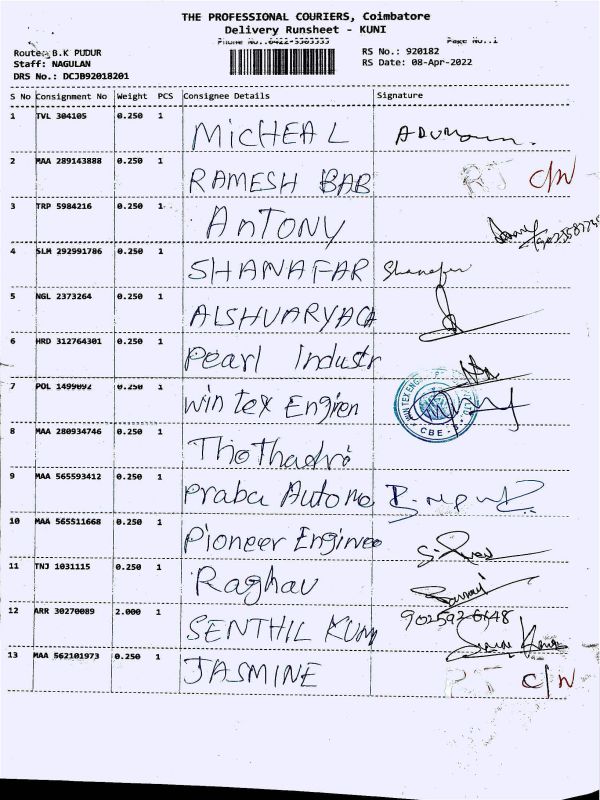 THE PROFESSIONAL COURIERS, Coimbatore
Delivery Runsheet - KUNI
Phone No.:0422-3303333 Page No.:1
Route: B.K PUDUR RS No.: 920182
Staff: NAGULAN RS Date: 08-Apr-2022
DRS No.: DCJB92018201
S No Consignment No Weight PCS Consignee Details Signature
1 TVL 304105 0.250 1 MicHEAL
2 MAA 289143888 0.250 1 RAMESH BAB RT C/W
3 TRP 5984216 0.250 1 AnTONY
4 SLM 292991786 0.250 1 SHANAFAR Shanafar
5 NGL 2373264 0.250 1 AISHVARYACA
6 HRD 312764301 0.250 1 Pearl Industr
7 POL 1499092 0.250 1 Win tex Engien WIN TEX ENG CBE
8 MAA 280934746 0.250 1 Thothadri
9 MAA 565593412 0.250 1 Praba Automo
10 MAA 565511668 0.250 1 Pioneer Enginee
11 TNJ 1031115 0.250 1 Raghav
12 ARR 30270089 2.000 1 SENTHIL KUM
13 MAA 562101973 0.250 1 JASMINE RT C/W